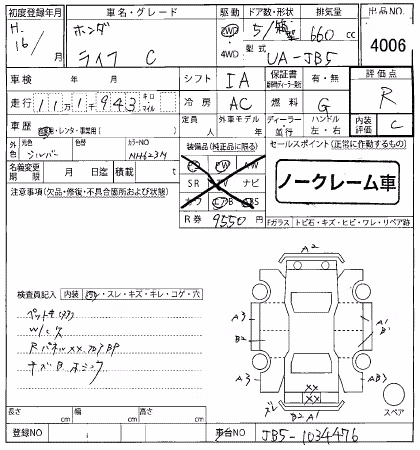 初度登録年月 車名・グレード 駆動 ドア数・形状 排気量 出品NO.
H. 16/ ホンダ ライフ C 2WD 4WD 5/ 型 660 cc 4006
型式 UA-JB5
車検 年 月 シフト IA 保証書 有・無 評価点
走行 11万1千943 キロ マイル 冷房 AC 燃料 G R
車歴 自家・レンタ・事業用( ) 定員 人 外車モデル 年 ディーラー 並行 ハンドル 左・右 内装評価 C
外色 元色 シルバー 色 カラーNO NH623M 装備品(純正品に限る) セールスポイント(正常に作動するもの)
名義変更期限 月 日迄 積載 t PS PW AW
SR TV ナビ
カワ エアB ABS
ノークレーム車
注意事項(欠品・修復・不具合箇所および状態) R券 9550円
Fガラス トビ石・キズ・ヒビ・ワレ・リペア跡
A2
検査員記入 内装 汚レ・スレ・キズ・キレ・コゲ・穴
A3 A1
B
RパネルXX フロアBP
A3 XX XX AB3
ズレ B2 A1
スペア
長さ cm 幅 cm 高さ cm
登録NO 車台NO JB5-1034476